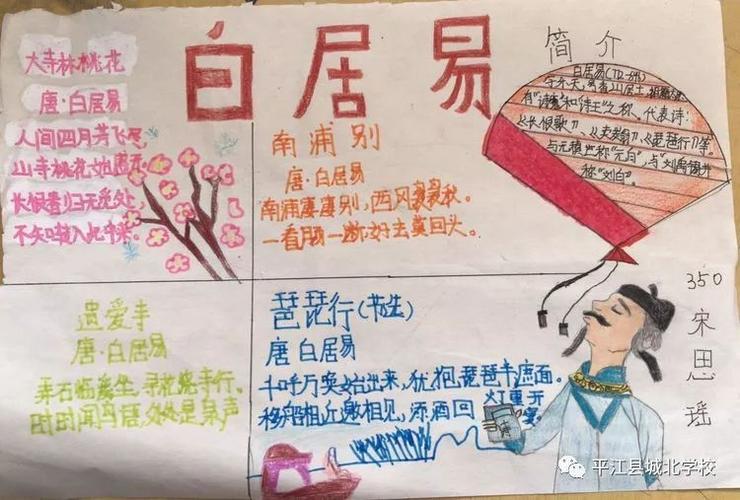 白居易
大寺林桃花
唐·白居易
人间四月芳飞尽
山寺桃花始盛开
长恨春归无觅处
不知转入此中来
南浦别
唐·白居易
南浦凄凄别,西风袅袅秋。
一看肠一断,好去莫回头。
简介
白居易
字乐天,号香山居士,
有"诗魔"和"诗王"之称、代表诗:
《长恨歌》、《卖炭翁》、《琵琶行》等。
与元稹共称"元白",与"刘禹锡并
称"刘白"。
遗爱寺
唐·白居易
弄石临溪坐,寻花绕寺行。
时时闻鸟语,处处是泉声
琵琶行(节选)
唐 白居易
千呼万唤始出来,犹抱琵琶半遮面。
移船相近邀相见,添酒回灯重开宴。
350
宋思瑶
平江县城北学校